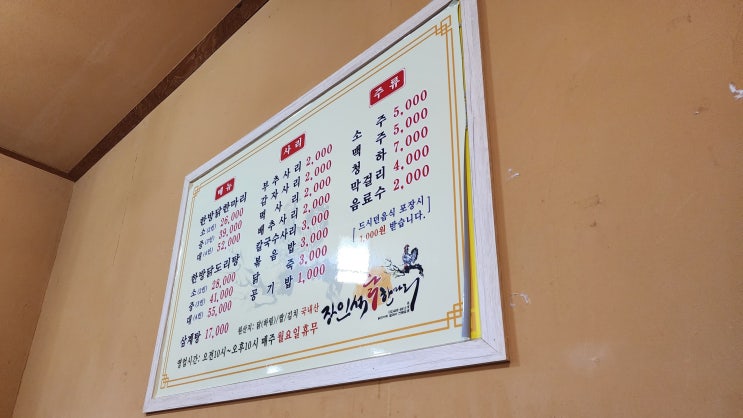 메뉴
한방닭한마리
소(2인) 26,000
중(3인) 39,000
대(4인) 52,000
한방닭도리탕
소(2인) 28,000
중(3인) 41,000
대(4인) 55,000
삼계탕 17,000
사리
부추사리 2,000
감자사리 2,000
떡사리 2,000
배추사리 2,000
칼국수사리 3,000
볶음밥 3,000
닭죽 3,000
공기밥 1,000
주류
소주 5,000
맥주 5,000
청하 7,000
막걸리 4,000
음료수 2,000
[드시던음식 포장시
1,000원 받습니다.]
원산지: 닭(하림)/쌀/김치 국내산
영업시간: 오전10시~오후10시 매주 월요일휴무
장인석 닭한마리